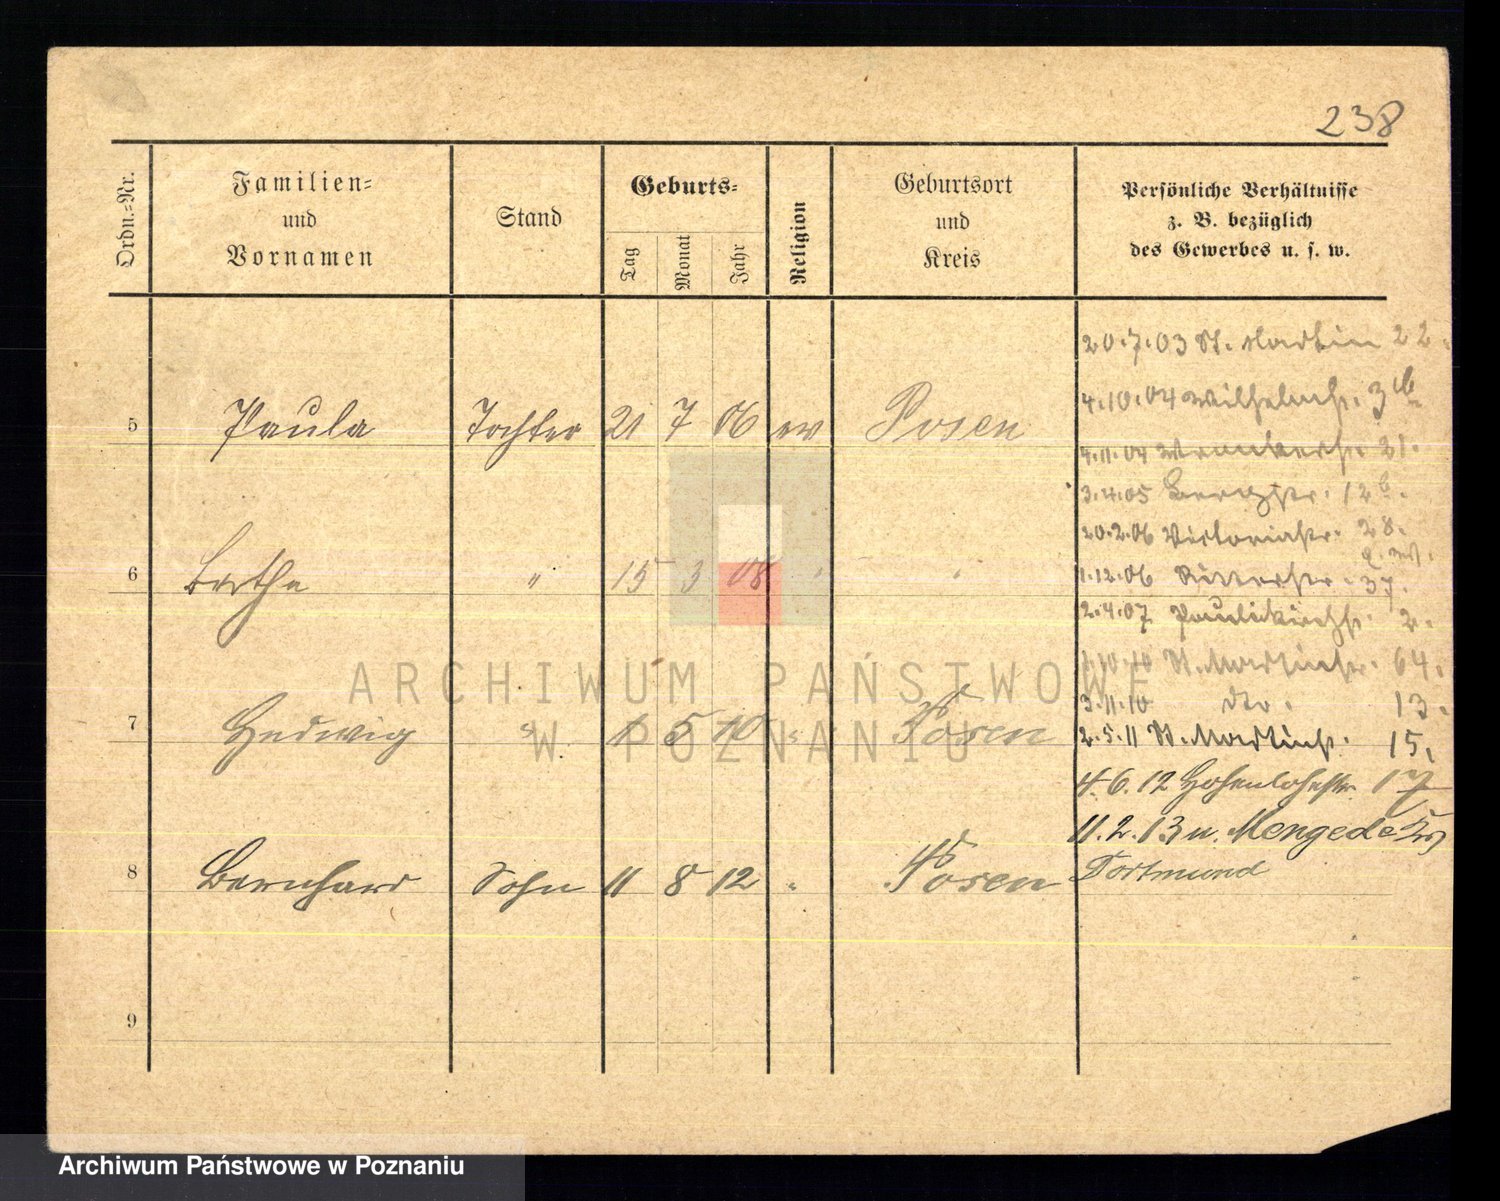 238
Ordn.-Nr.
Familien-
und
Vornamen
Stand
Geburts-
Tag
Monat
Jahr
Religion
Geburtsort
und
Kreis
Persönliche Verhältnisse
z. B. bezüglich
des Gewerbes u. s. w.
20.7.03 St. Martin 22.
4.10.04 Wilhelmstr. 3b
5 Paula Tochter 21 7 06 ev Posen
4.11.04 Wronkerstr. 21.
3.4.05 Bergstr. 12b.
20.2.06 Victoriastr. 28.
6 Berthe " 15 3 08 " "
1.12.06 Ritterstr. 37.
2.4.07 Paulikirchstr. 2.
1.10.10 St. Martinstr. 64.
3.11.10 dto. 13.
7 Hedwig " 1 5 10 " Posen
2.5.11 St. Martinstr. 15.
4.6.12 Hohenlohestr. 17
11.2.13 n. Mengede Krs
8 Bernhard Sohn 11 8 12 " Posen
Dortmund
9
ARCHIWUM PAŃSTWOWE
W POZNANIU
Archiwum Państwowe w Poznaniu